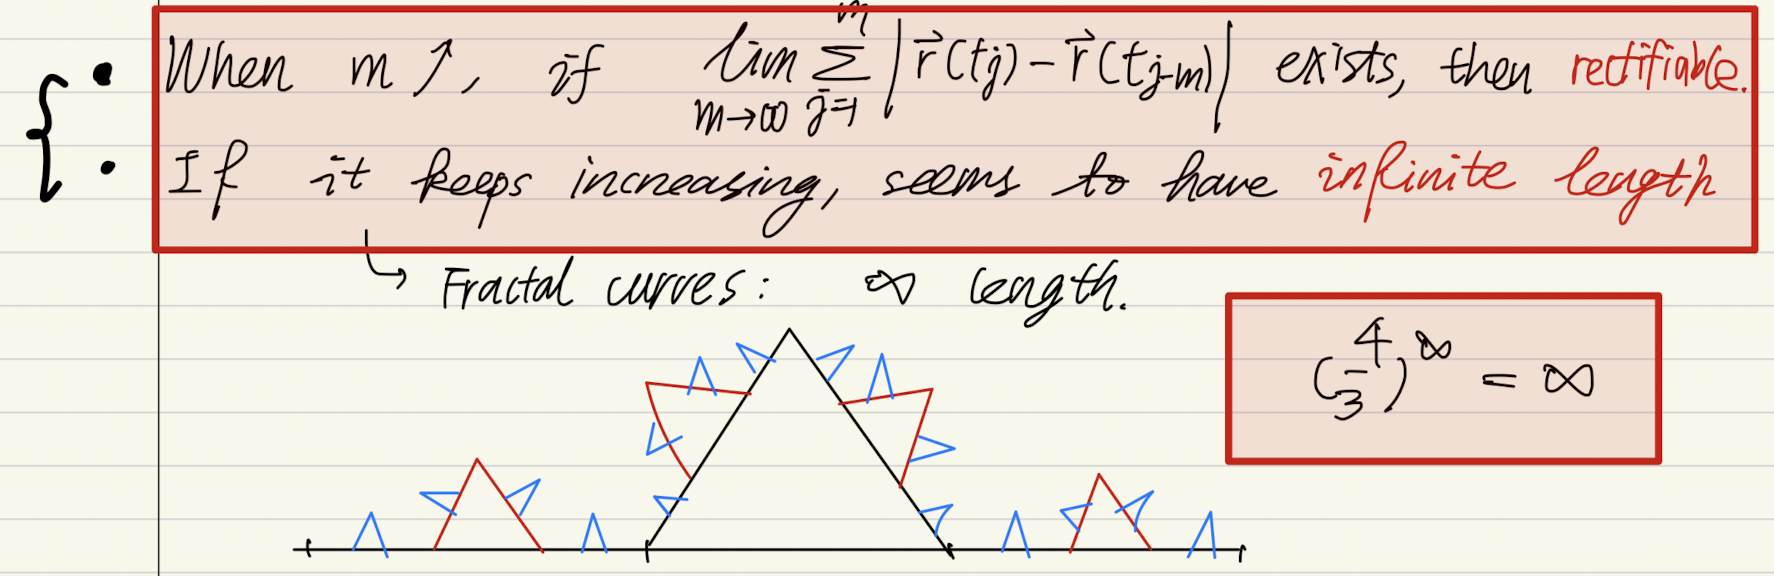 When m ↗, if lim m→∞ m Σ j=1 | r⃗(tj) - r⃗(tj-m) | exists, then rectifiable.
If it keeps increasing, seems to have infinite length
↳ Fractal curves: ∞ length.
(4/3)^∞ = ∞